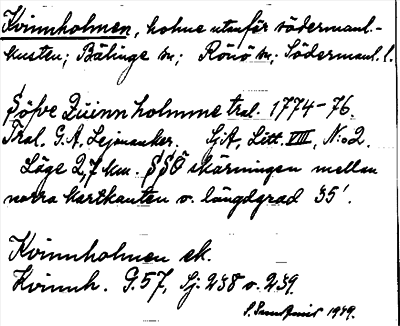 Kvinnholmen, holme utanför södermanl.-
kusten; Bälinge sn; Rönö hd; Södermanl. l.
Söfre Quinnholmme tral. 1774-76.
Tral. G.A. Lejonanker. SjA, Litt. VIII, N:o 2.
Läge 2,7 km. SSÖ skärningen mellan
norra kartkanten o. längdgrad 35'.
Kvinnholmen ek.
Kvinnh. G.57, Sj. 238 o. 239.
1949.